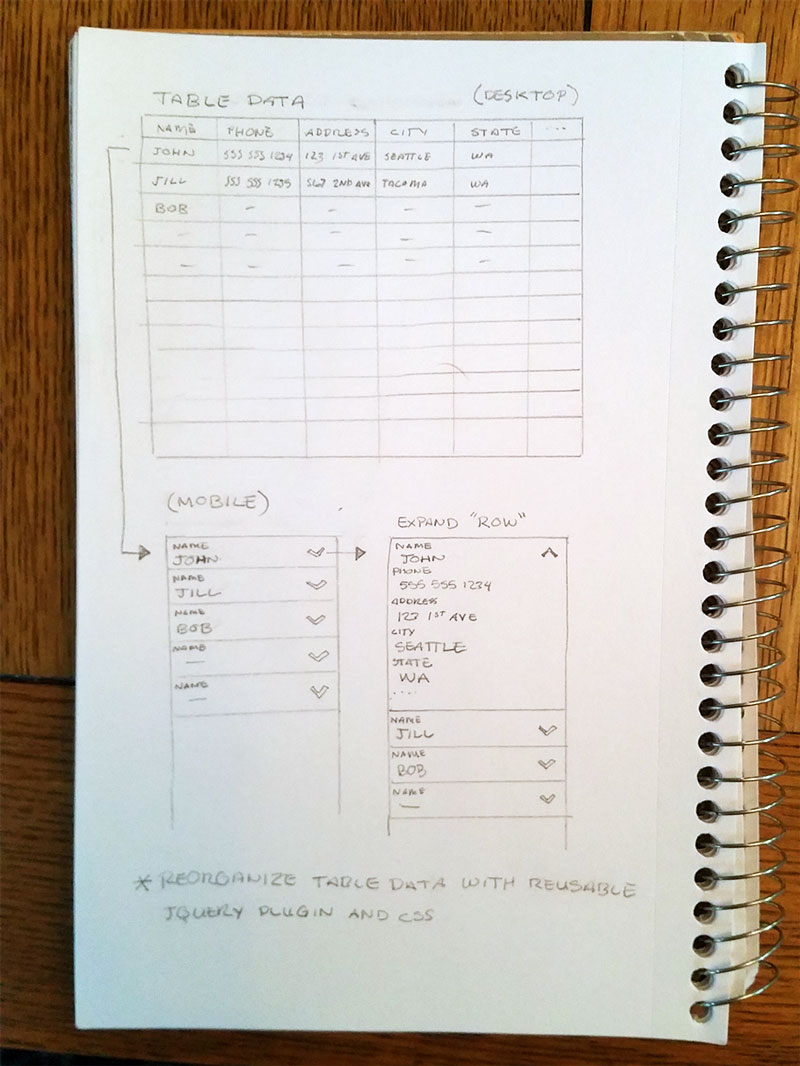 TABLE DATA (DESKTOP)
NAME PHONE ADDRESS CITY STATE ...
JOHN 555 555 1234 123 1ST AVE SEATTLE WA
JILL 555 555 1235 567 2ND AVE TACOMA WA
BOB — — — —
— — — —
— — — — —
(MOBILE)
NAME
JOHN
NAME
JILL
NAME
BOB
NAME
—
NAME
—
EXPAND "ROW"
NAME
JOHN
PHONE
555 555 1234
ADDRESS
123 1ST AVE
CITY
SEATTLE
STATE
WA
....
NAME
JILL
NAME
BOB
NAME
—
* REORGANIZE TABLE DATA WITH REUSABLE
JQUERY PLUGIN AND CSS